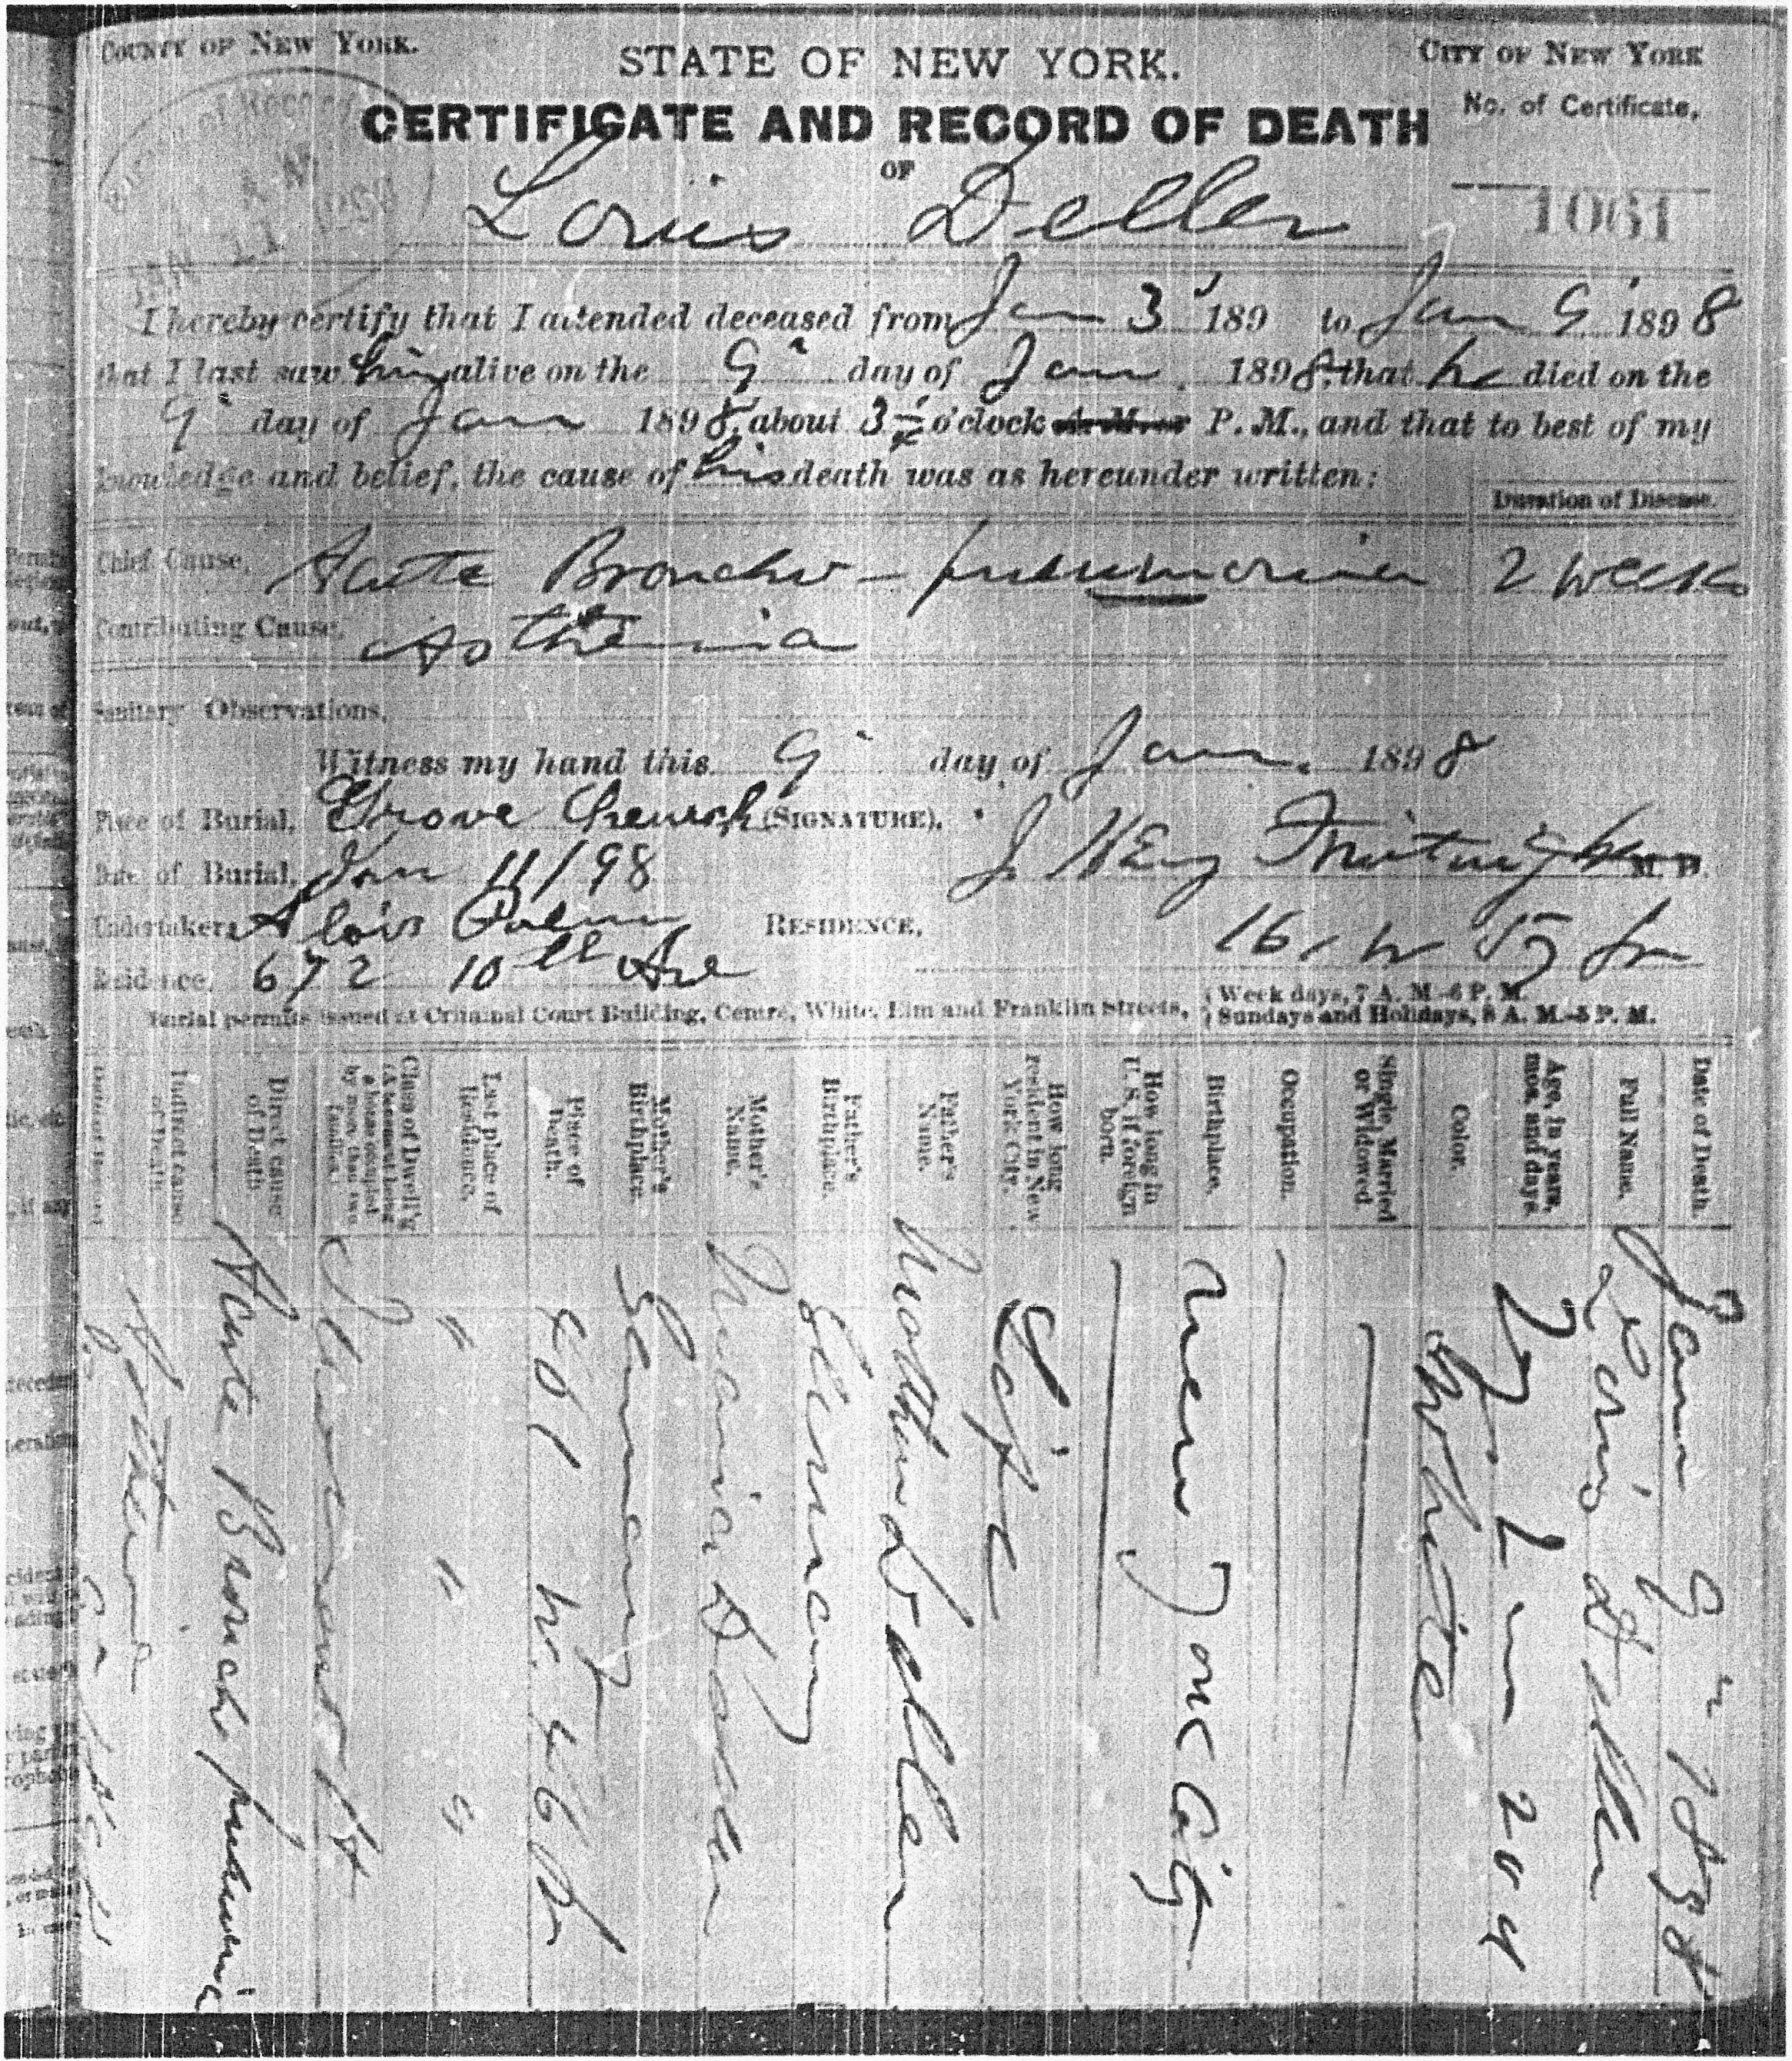 COUNTY OF NEW YORK.
STATE OF NEW YORK.
CITY OF NEW YORK
CERTIFICATE AND RECORD OF DEATH
No. of Certificate,
OF
1061
Louis Deller
I hereby certify that I attended deceased from Jan 3 189 to Jan 9 1898
that I last saw him alive on the 9" day of Jan. 1898, that he died on the
9" day of Jan 1898, about 3 o'clock P. M., and that to best of my
knowledge and belief, the cause of his death was as hereunder written:
Duration of Disease.
Chief Cause, Acute Broncho-pneumonia 2 weeks
Contributing Cause, Asthenia
Sanitary Observations,
Witness my hand this 9" day of Jan. 1898
Place of Burial, Grove Church (SIGNATURE),
M. D.
Date of Burial, Jan 11/98
Undertaker, Alois RESIDENCE, 161 W
Residence, 672 10th Ave
Burial permits issued at Criminal Court Building, Centre, White, Elm and Franklin Streets, { Week days, 7 A. M.-6 P. M.
{ Sundays and Holidays, 8 A. M.-5 P. M.
Date of Death. Jan 9" 1898
Full Name. Louis Deller
Age, in years, mos. and days. 2 m 20 d
Color. White
Single, Married or Widowed
Occupation.
Birthplace. New York City
How long in U. S. if foreign born.
How long resident in New York City. Life
Father's Name. Deller
Father's Birthplace. Germany
Mother's Name. Maria
Mother's Birthplace. Germany
Place of Death. 461 W. 46 St
Last place of Residence. " " "
Class of Dwell'g (A tenement being a house occupied by more than two families.) Tenement
Direct cause of Death Acute Broncho pneumonia
Indirect cause of Death Asthenia